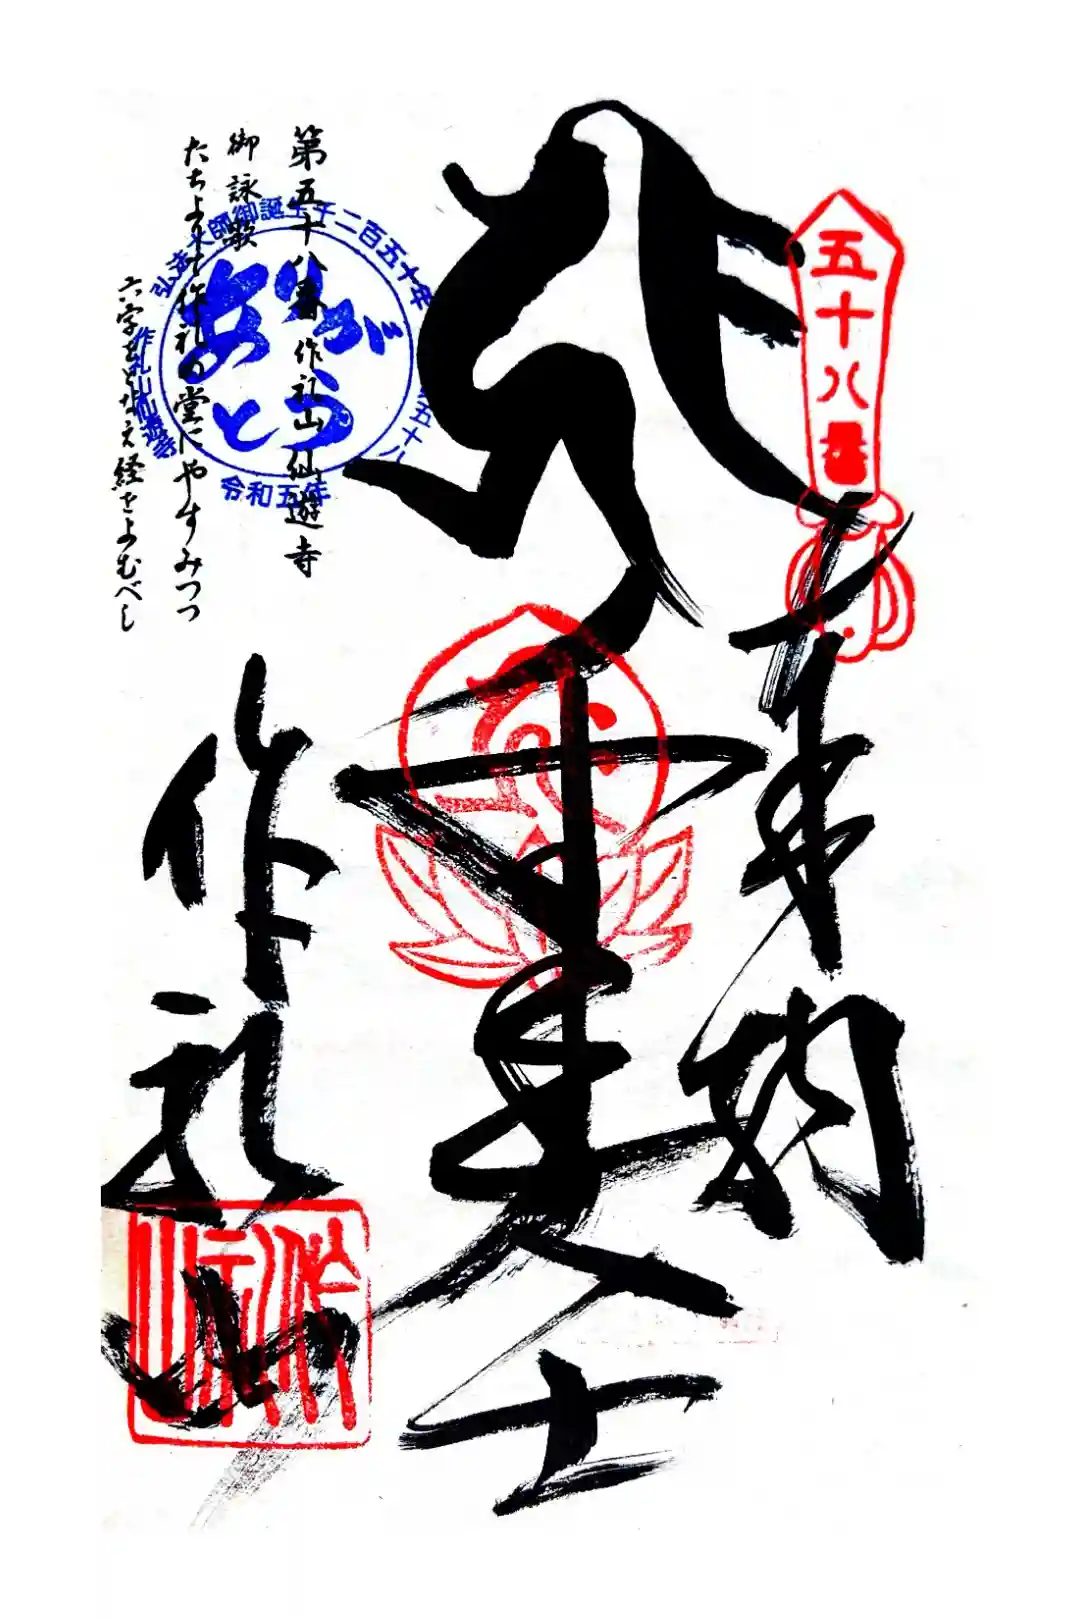 五十八番
奉納
千手大士
作礼山
第五十八番 作礼山 仙遊寺
御詠歌
たちよりて作礼の堂にやすみつつ
六字をとなえ経をよむべし
弘法大師御誕生千二百五十年
ありがとう
令和五年
作礼山仙遊寺
五十八